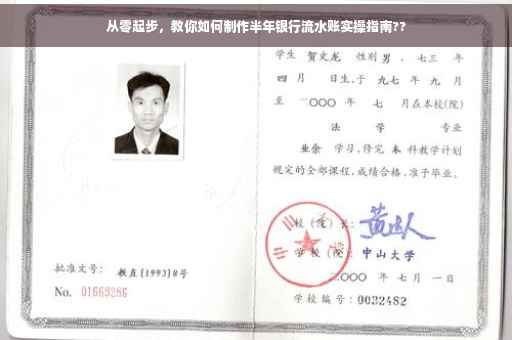 从零起步，教你如何制作半年银行流水账实操指南??
学生 贺文龙 性别 男 ，七三 年
四 月 日生，于 九七 年 九 月
至 二〇〇〇 年 七 月在本校(院)
法 学 专业
业余 学习，修完 本 科教学计划
规定的全部课程，成绩合格，准予毕业。
校(院)长：
学 校(院)： 中山大学
二〇〇〇 年 七 月 一 日
学校编号：0032482
批准文号： 教直[1993]8号
No. 01669286